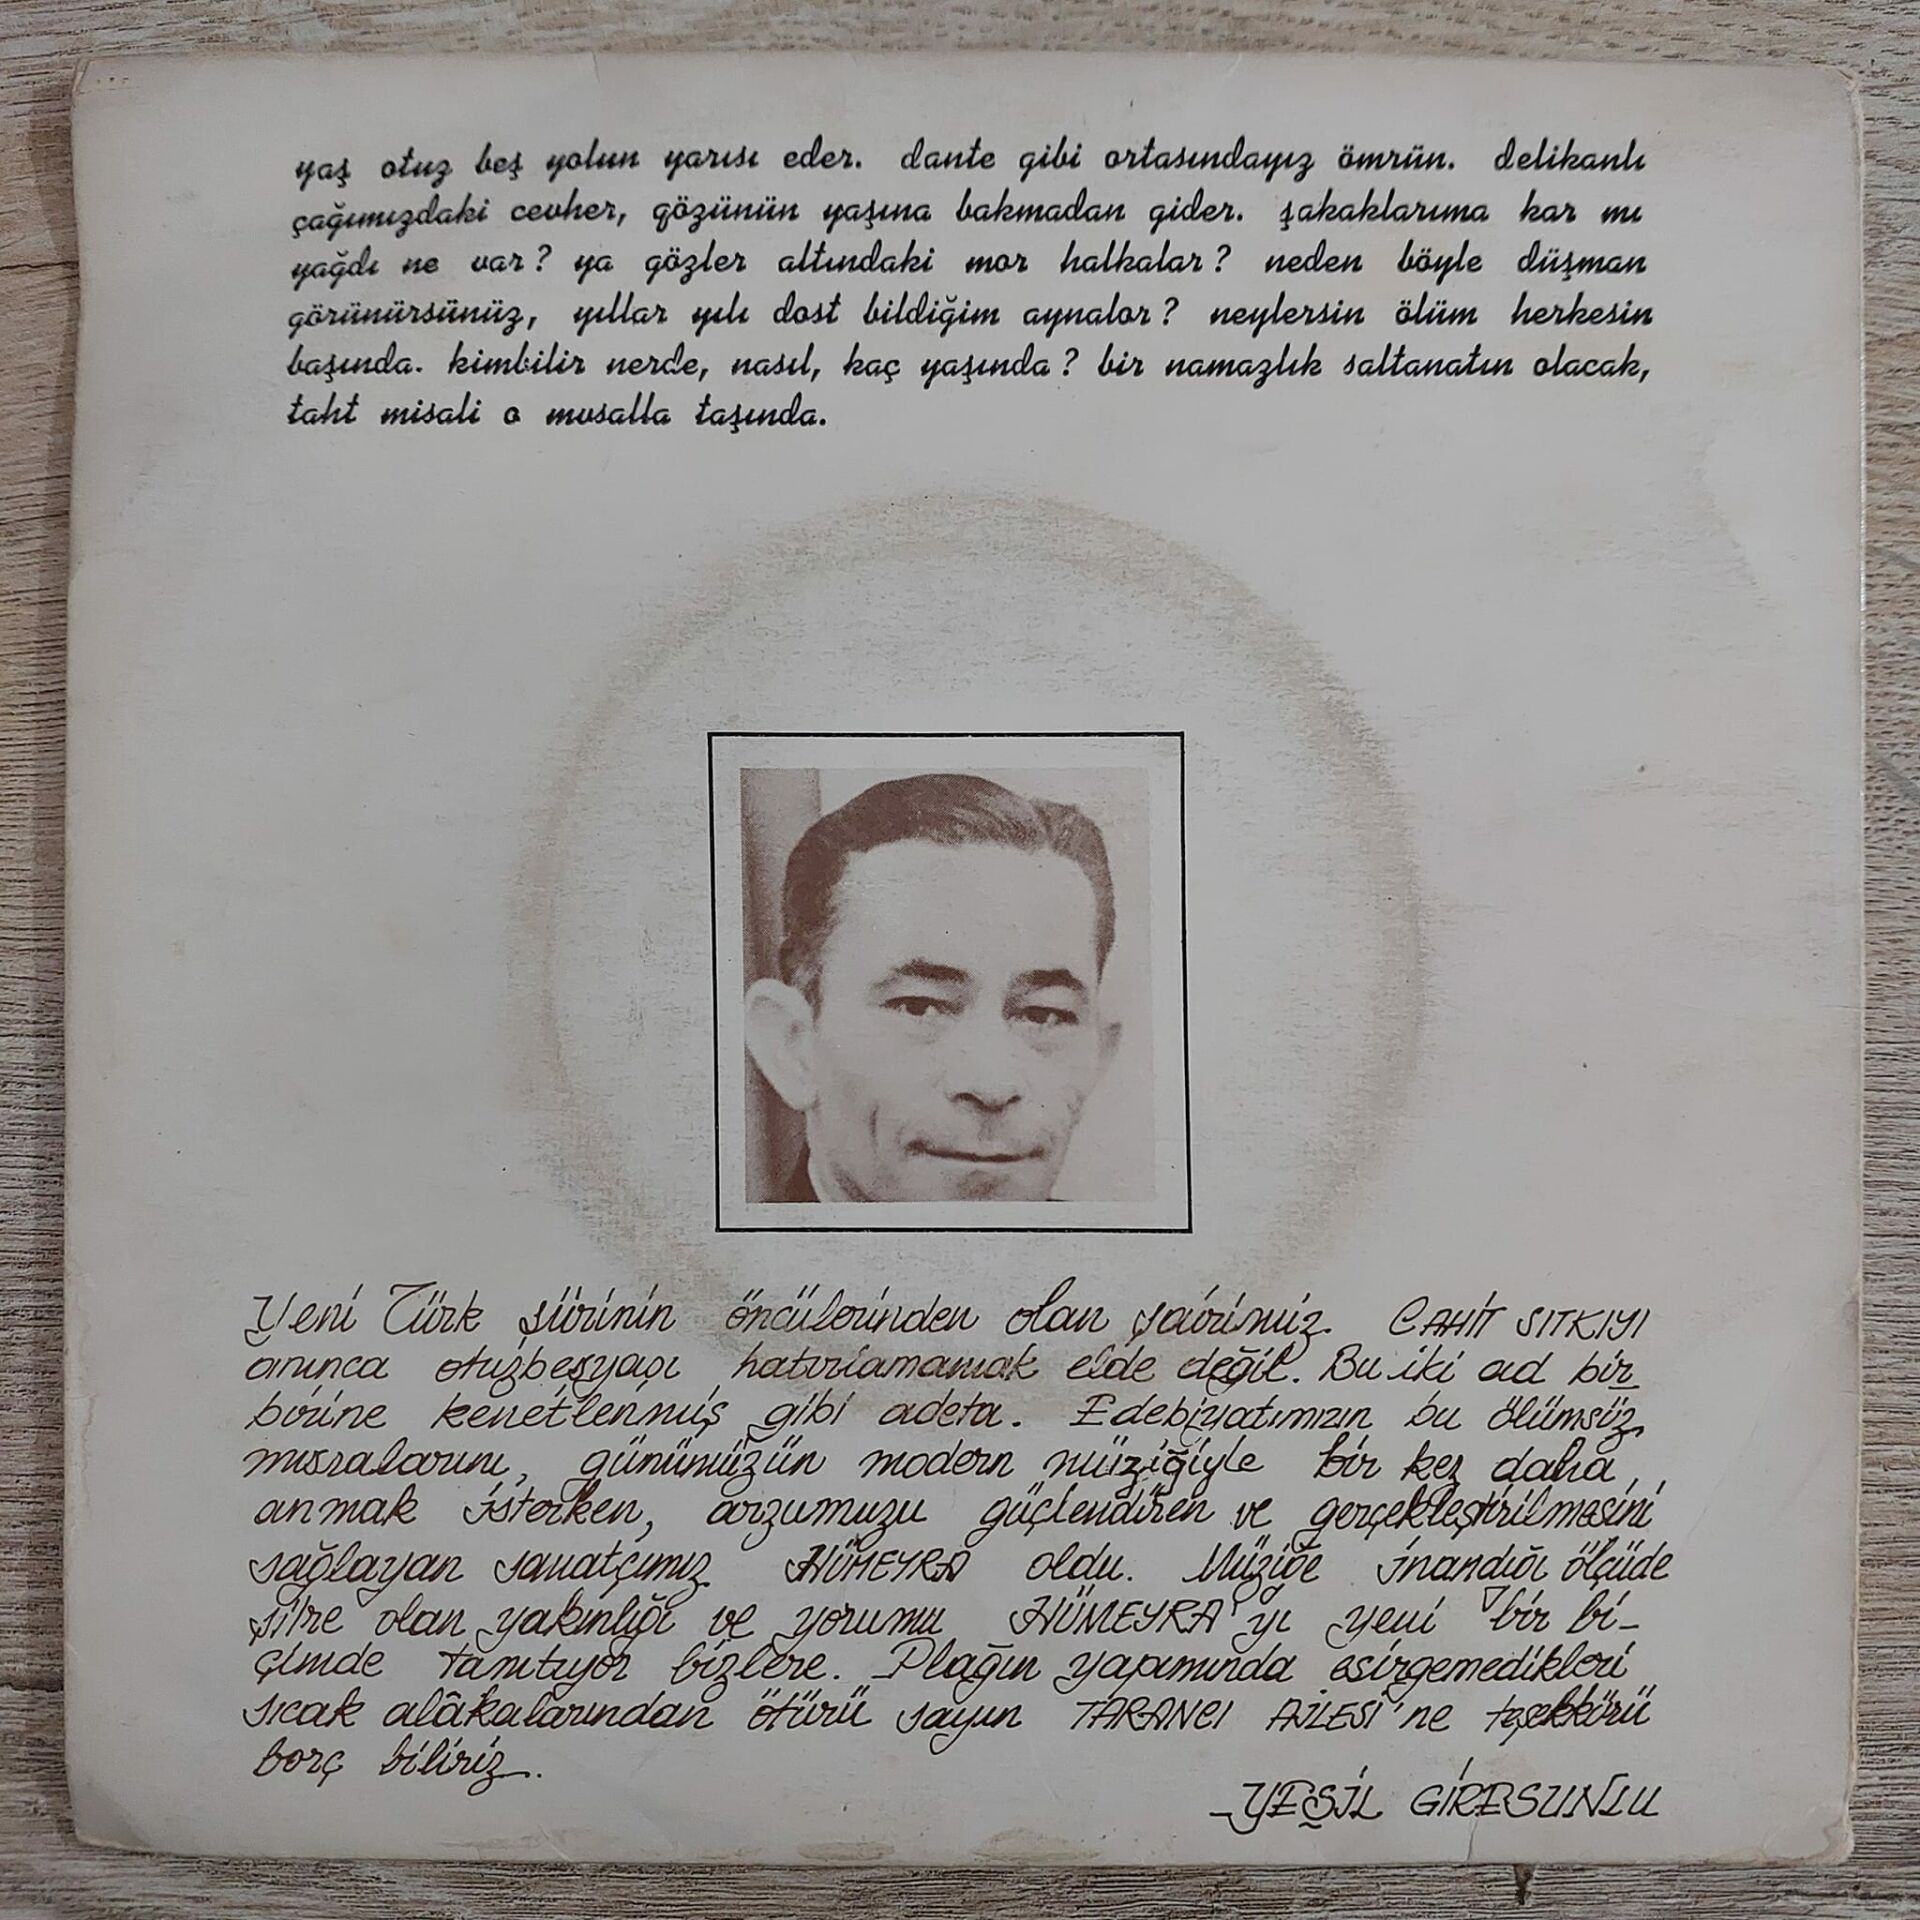 yaş otuz beş yolun yarısı eder. dante gibi ortasındayız ömrün. delikanlı
çağımızdaki cevher, gözünün yaşına bakmadan gider. şakaklarıma kar mı
yağdı ne var? ya gözler altındaki mor halkalar? neden böyle düşman
görünürsünüz, yıllar yılı dost bildiğim aynalar? neylersin ölüm herkesin
başında. kimbilir nerde, nasıl, kaç yaşında? bir namazlık saltanatın olacak,
taht misali o musalla taşında.
Yeni Türk şiirinin öncülerinden olan şairimiz. CAHİT SITKIYI
anınca otuzbeşyaşı hatırlamamak elde değil. Bu iki ad bir
birine kenetlenmiş gibi adeta. Edebiyatımızın bu ölümsüz
mısralarını, günümüzün modern müziğiyle bir kez daha,
anmak isterken, arzumuzu güçlendiren ve gerçekleştirilmesini
sağlayan sanatçımız HÜMEYRA oldu. Müziğe inandığı ölçüde
şiire olan yakınlığı ve yorumu HÜMEYRA'yı yeni bir bi-
çimde tanıtıyor bizlere. Plağın yapımında esirgemedikleri
sıcak alâkalarından ötürü sayın TARANCI AİLESİ'ne teşekkürü
borç biliriz.
YEŞİL GİRESUNLU